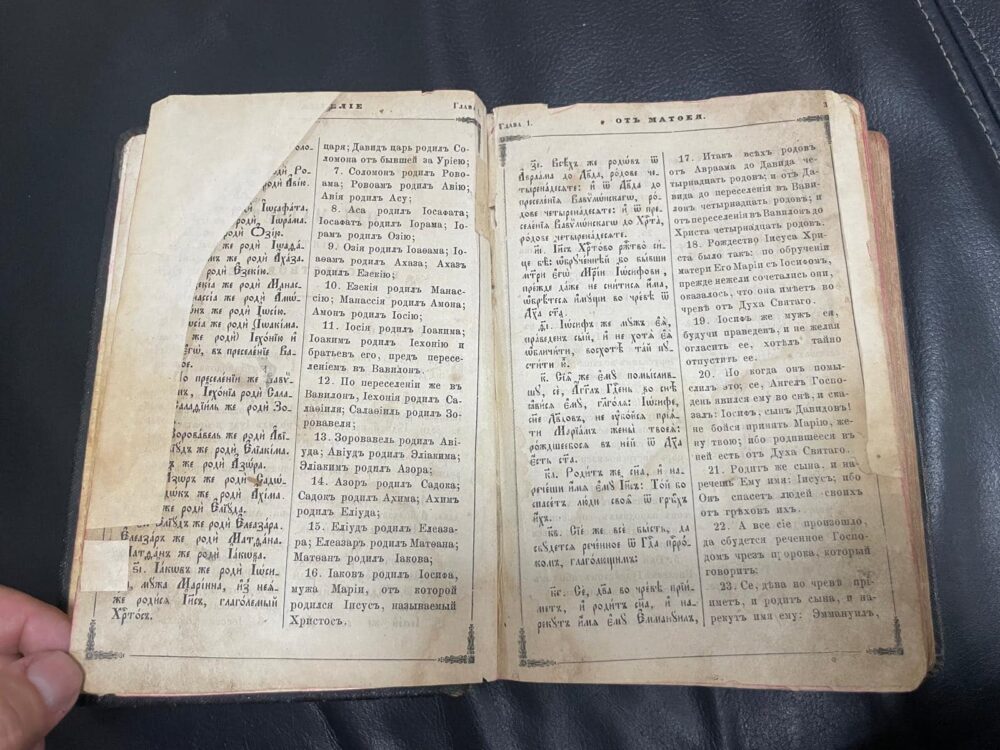 ЕЛІЕ
Глава
оло-
Ро-
Авію.
Іѡсафата.
Іѡрама.
роди Ѻзію.
же роди Іѡаѳа-
же роди Ахаза.
роди Езекію.
же роди Манас-
же роди Амѡ-
же роди Іѡсію.
же роди Іѡакіма.
же роди Іехонію и
въ преселеніе Ва-
По преселеніи же Вавѵ-
Іехоніа роди Сала-
Салаѳіиль же роди Зо-
Зоровавель же роди Аві-
же роди Еліакіма.
же роди Азѡра.
Азѡръ же роди Садѡ-
же роди Ахіма.
же роди Еліуда.
Еліудъ же роди Елеазара.
Елеазаръ же роди Матѳана.
Матѳанъ же роди Іакѡва.
ѕі. Іакѡвъ же роди Іѡси-
мужа Маріина, изъ нея-
же родися Іисъ, глаголемый
Хртосъ.
царя; Давидъ царь родил Со-
ломона отъ бывшей за Уріею;
7. Соломон родилъ Рово-
ама; Ровоам родилъ Авію;
Авія родил Асу;
8. Аса родилъ Іосафата;
Іосафатъ родилъ Іорама; Іо-
рамъ родилъ Озію;
9. Озія родилъ Іоаѳама; Іо-
аѳамъ родилъ Ахаза; Ахазъ
родилъ Езекію;
10. Езекія родилъ Манас-
сію; Манассія родилъ Амона;
Амон родилъ Іосію;
11. Іосія родилъ Іоакима;
Іоаким родилъ Іехонію и
братьевъ его, предъ пересе-
леніемъ въ Вавилонъ.
12. По переселеніи же въ
Вавилонъ, Іехонія родилъ Са-
лаѳіиля; Салаѳіиль родилъ Зо-
ровавеля;
13. Зоровавель родилъ Аві-
уда; Авіудъ родилъ Эліакима;
Эліакимъ родил Азора;
14. Азоръ родилъ Садока;
Садокъ родилъ Ахима; Ахимъ
родилъ Еліуда;
15. Еліудъ родилъ Елеаза-
ра; Елеазаръ родилъ Матѳана;
Матѳанъ родилъ Іакова;
16. Іаковъ родилъ Іосифа,
мужа Маріи, отъ которой
родился Іисусъ, называемый
Христосъ.
Глава 1.
ОТЪ МАТѲЕЯ.
3
зі. Всѣхъ же родѡвъ ѿ
Авраама до Двда, родове че-
тыренадесяте: и ѿ Двда до
преселенія Вавѵлѡнскагѡ, ро-
дове четыренадесяте: и ѿ пре-
селенія Вавѵлѡнскагѡ до Хрта,
родове четыренадесяте.
иі. Іисъ Хртово рждтво си-
це бѣ: ѡбрученнѣй бо бывши
мтри егѡ Мріи Іѡсифови,
прежде даже не снитися има,
ѡбрѣтеся имущи во чревѣ ѿ
Дха ста.
ѳі. Іѡсифъ же мужъ ея,
праведенъ сый, и не хотя ея
ѡбличити, восхотѣ тай пу-
стити ю.
к. Сія же ему помыслив-
шу, се, Агглъ Гдень во снѣ
явися ему, глаголя: Іѡсифе,
сне Двдовъ, не убойся прія-
ти Маріамъ жены твоея:
рождшеебося въ ней ѿ Дха
есть ста.
ка. Родитъ же сна, и на-
речеши имя ему Іисъ: Той бо
спасетъ люди своя ѿ грѣхъ
ихъ.
кв. Сіе же все бысть, да
сбудется реченное ѿ Гда прро-
комъ, глаголющимъ:
кг. Се, два во чревѣ прій-
метъ, и родитъ сна, и на-
рекутъ имя ему Еммануилъ,
17. Итакъ всѣхъ родовъ
отъ Авраама до Давида че-
тырнадцать родовъ; и отъ Да-
вида до переселенія въ Вави-
лонъ четырнадцать родовъ; и
отъ переселенія въ Вавилонъ до
Христа четырнадцать родовъ.
18. Рождество Іисуса Хри-
ста было такъ: по обрученіи
матери Его Маріи съ Іосифомъ,
прежде нежели сочетались они,
оказалось, что она имѣетъ во
чревѣ отъ Духа Святаго.
19. Іосифъ же мужъ ея,
будучи праведенъ, и не желая
огласить ее, хотѣлъ тайно
отпустить ее.
20. Но когда онъ помы-
слилъ это; се, Ангелъ Госпо-
день явился ему во снѣ, и ска-
залъ: Іосифъ, сынъ Давидовъ!
не бойся принять Марію, же-
ну твою; ибо родившееся въ
ней есть отъ Духа Святаго.
21. Родитъ же сына, и на-
речешь Ему имя: Іисусъ; ибо
Онъ спасетъ людей своихъ
отъ грѣховъ ихъ.
22. А все сіе произошло,
да сбудется реченное Госпо-
домъ чрезъ пророка, который
говоритъ:
23. Се, дѣва во чревѣ прі-
иметъ, и родитъ сына, и на-
рекутъ имя ему: Эммануилъ,